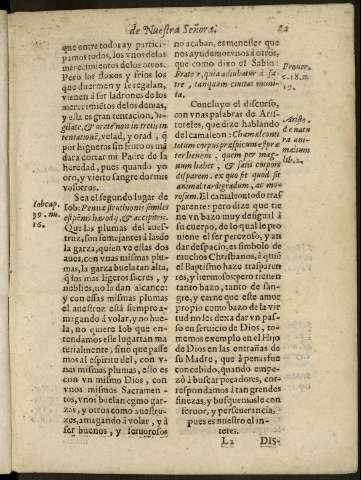 de Nuestra Señora.
82
que entre todos ay partici-
pamos todos, los vnos de los
merecimientos de los otros.
Pero los floxos y frios los
que duermen y se regalan,
vienen à ser ladrones de los
merecimiẽtos de los demas,
y esta es gran tentacion, Vi-
gilate, & orate non intretis in
tentationẽ, velad, y orad, q̃
por higueras sin fruto os mã
dara cortar mi Padre de la
heredad, pues quando yo
oro, y vierto sangre dormis
vosotros.
Sea el segundo lugar de
Iob: Penna struthionis similes
est pẽnis herodij, & accipitris.
Iob cap.
39. nu.
16.
Que las plumas del aues-
truz, son semejantes à las de
la garza, quien ve estas dos
aues, con vnas mismas plu-
mas, la garza buela tan alta,
q̃ los mas ligeros sacres, y
neblies, no la dan alcance:
y con essas mismas plumas
el auestruz está siempre a-
magando á volar, y no bue-
la, no quiere Iob que en-
tendamos este lugar tan ma
terialmente, sino que passe
mos al espiritu del, con v-
nas mismas plumas, esto es
con vn mismo Dios, con
vnos mismos Sacramen-
tos, vnos buelan como gar-
zas, y otros como auestru-
zes, amagando á volar, y á
ser buenos, y feruorosos
no acaban, es menester que
nos ayudemos vnos á otros,
que como dixo el Sabio:
Frater, qui adiubatur à fra
tre, tanquam ciuitas muni-
ta.
Prouer.
c. 18. n.
19.
Concluyo el discurso,
con vnas palabras de Aris-
toteles, que dize hablando
del camaleon: Chamaleonti
totum corpus præspicuum est præ
ter lienem, quem per mag-
num habet, & sati corpore
disparem. ex quo fit quod sit
animal tardigradum, ac mo-
rosum. El camaleon todo tras
Aristo.
de natu
ra ani-
malium
lib. 2.
parente: pero dize que tie
ne vn bazo muy desigual á
su cuerpo, de lo qual le pro
uiene el ser perezoso, y an
dar despacio, es simbolo de
muchos Christianos, á quiẽ
el Baptismo haze trasparen
tes, y hermosos pero tienen
tanto bazo, tanto de san-
gre, y carne que este amor
proprio como bazo de la vir
tud no les dexa dar vn pas-
so en seruicio de Dios, to-
memos exemplo en el Hijo
de Dios en las entrañas de
su Madre, que á penas fue
concebido, quando empe-
zó á buscar pecadores, cor-
respondamos à tan grandes
finezas, y busquemosle con
feruor, y perseuerancia,
pues es nuestro el in-
teres.
L2
DIS-